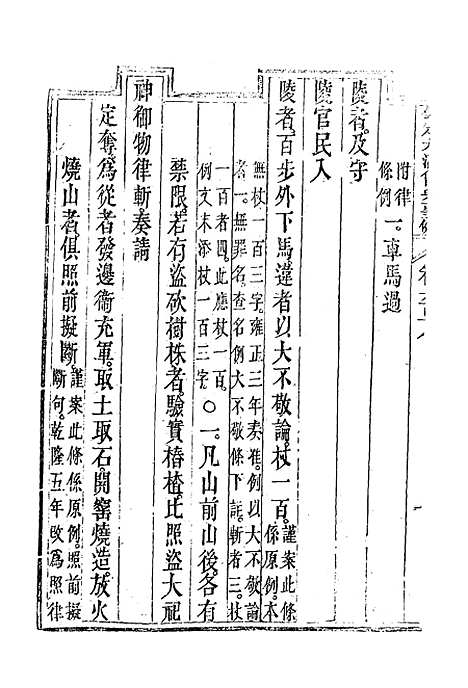 附律
條例 一。車馬過
陵者。及守
陵官民入
陵者。百步外下馬。違者以大不敬論。杖一百。謹案此條
係原例。本
無杖一百三字。雍正三年奏准。例以大不敬論
者。無罪名。查名例大不敬條下註。斬者三。杖
一百者四。此應杖一百。
例文末添杖一百三字。○一。凡山前山後。各有
禁限。若有盜砍樹株者。驗實樁楂。比照盜大祀
神御物律斬。奏請
定奪。爲從者發邊衞充軍。取土取石。開窰燒造。放火
燒山者。俱照前擬斷。謹案此條係原例。照前擬
斷句。乾隆五年改爲照律